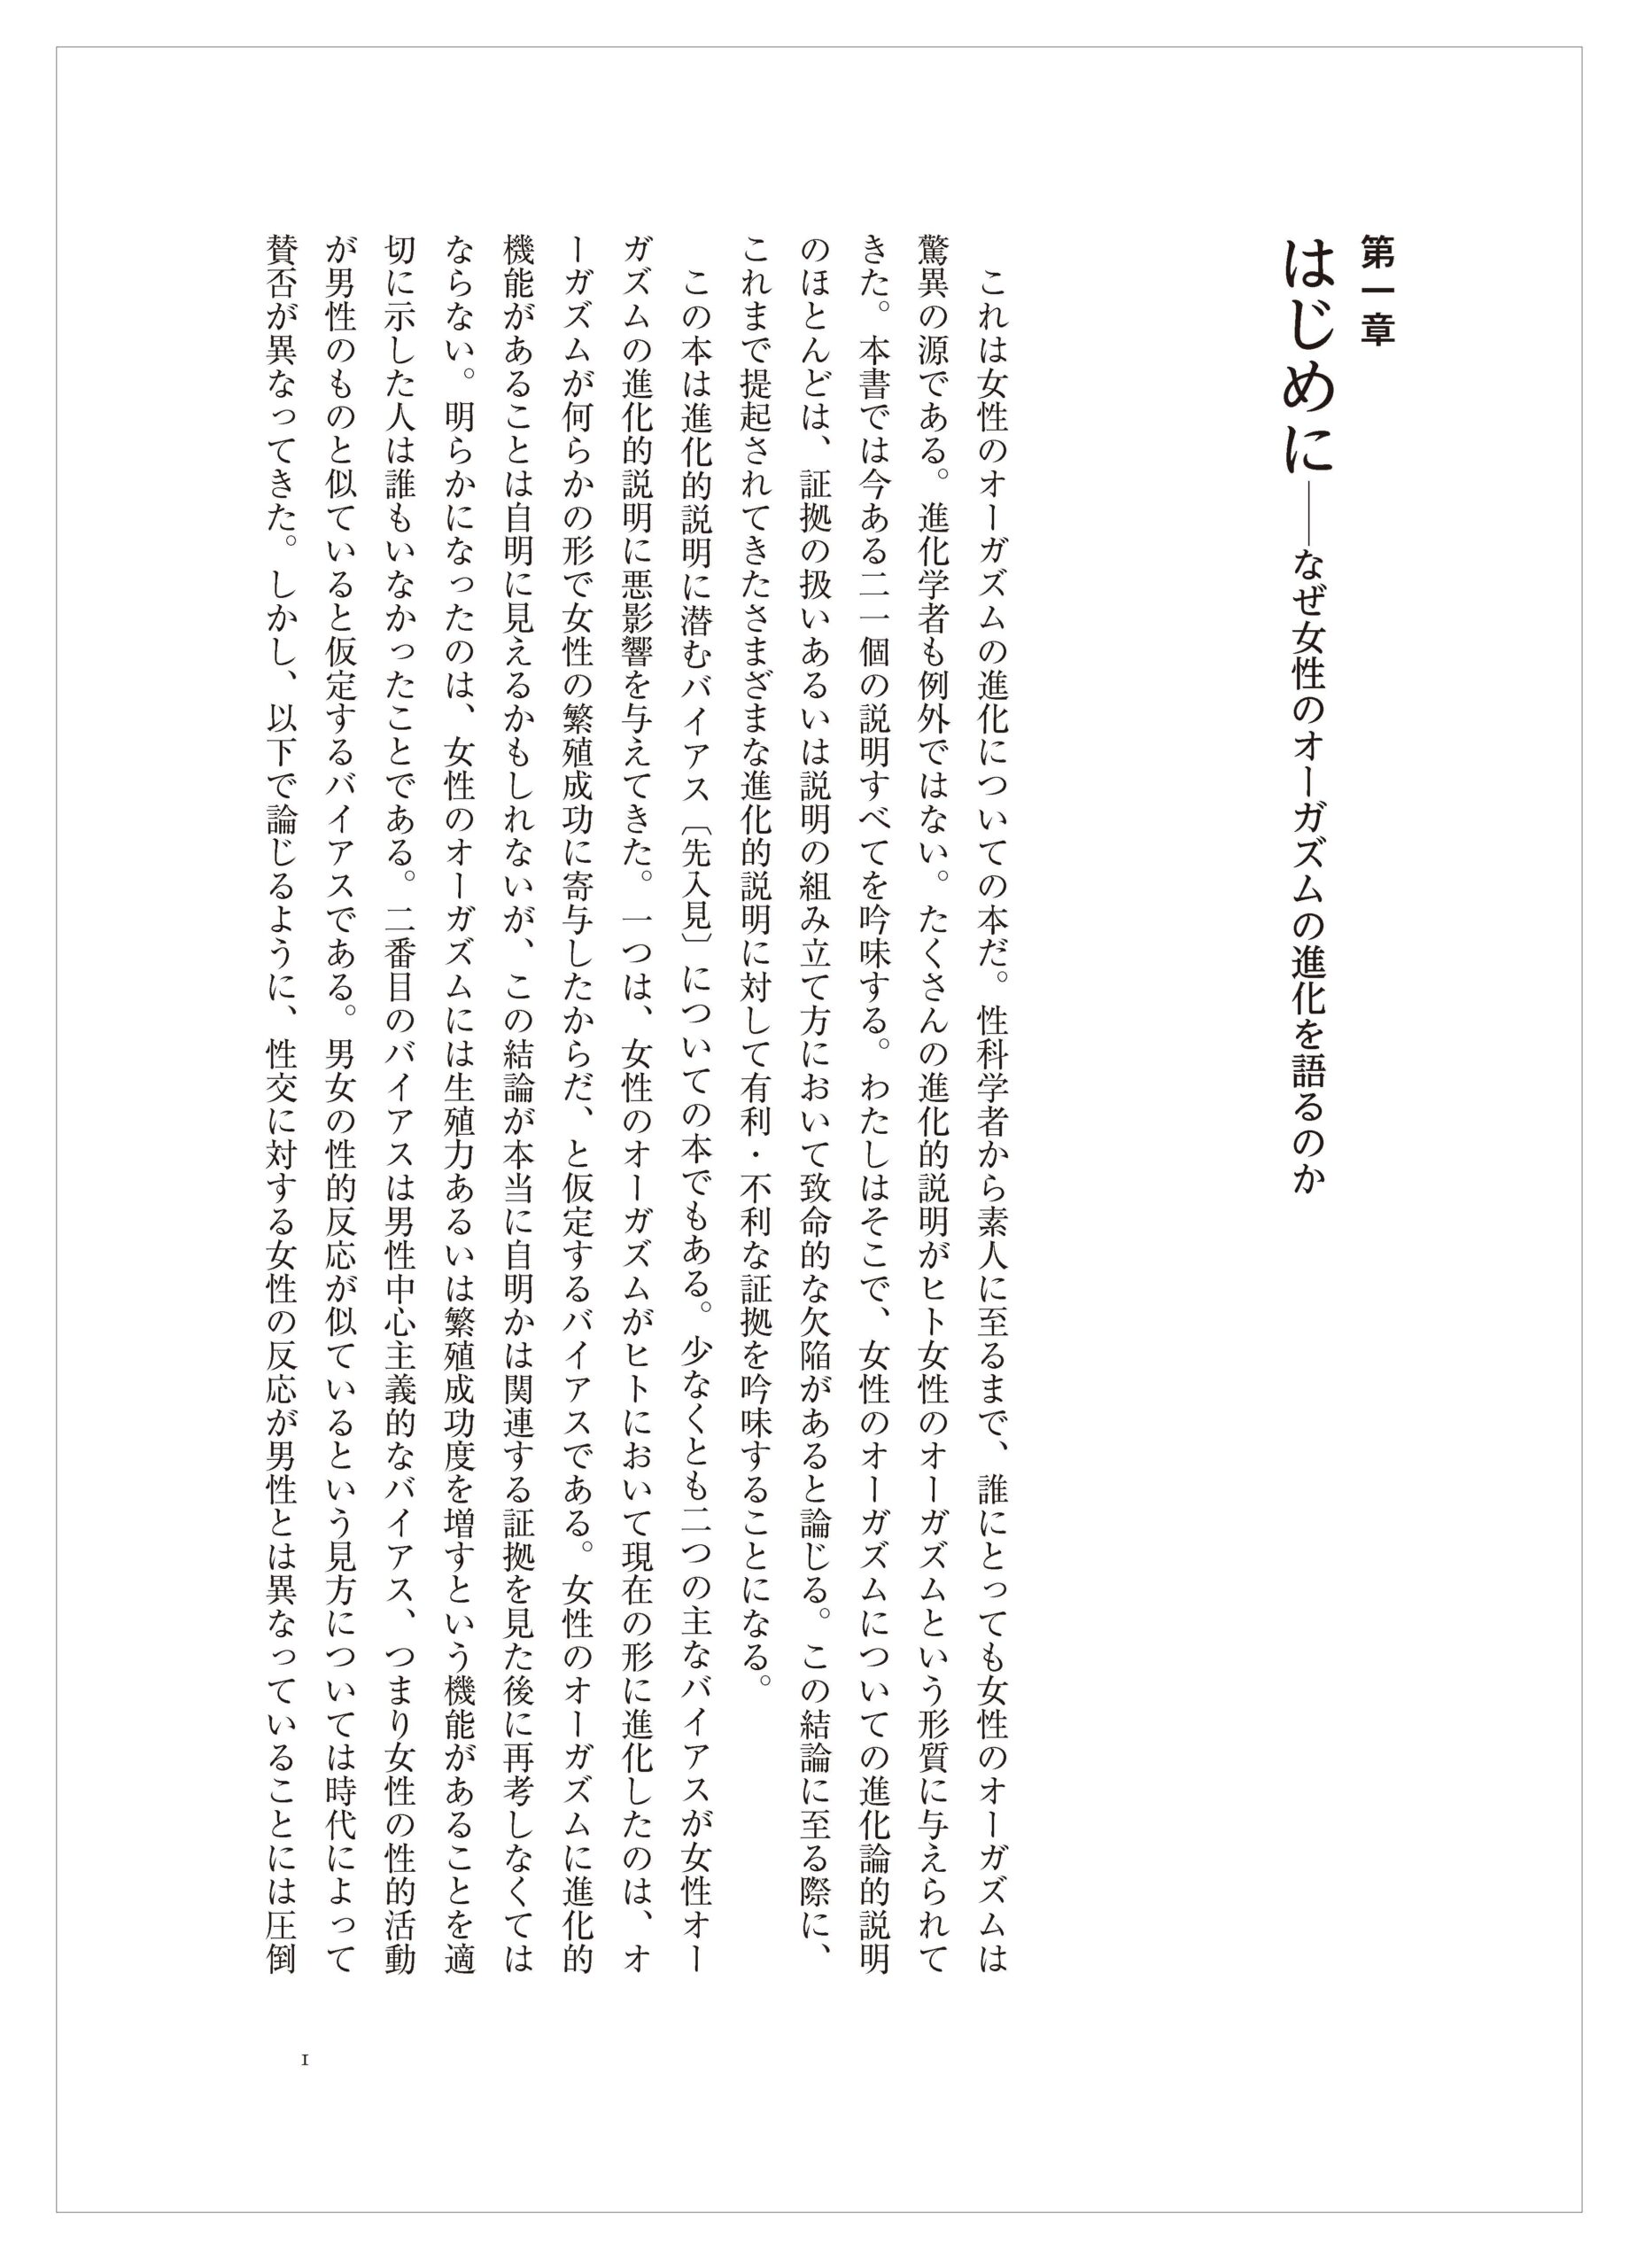 第一章
はじめに──なぜ女性のオーガズムの進化を語るのか
これは女性のオーガズムの進化についての本だ。性科学者から素人に至るまで、誰にとっても女性のオーガズムは
驚異の源である。進化学者も例外ではない。たくさんの進化的説明がヒト女性のオーガズムという形質に与えられて
きた。本書では今ある二一個の説明すべてを吟味する。わたしはそこで、女性のオーガズムについての進化論的説明
のほとんどは、証拠の扱いあるいは説明の組み立て方において致命的な欠陥があると論じる。この結論に至る際に、
これまで提起されてきたさまざまな進化的説明に対して有利・不利な証拠を吟味することになる。
この本は進化的説明に潜むバイアス〔先入見〕についての本でもある。少なくとも二つの主なバイアスが女性オー
ガズムの進化的説明に悪影響を与えてきた。一つは、女性のオーガズムがヒトにおいて現在の形に進化したのは、オ
ーガズムが何らかの形で女性の繁殖成功に寄与したからだ、と仮定するバイアスである。女性のオーガズムに進化的
機能があることは自明に見えるかもしれないが、この結論が本当に自明かは関連する証拠を見た後に再考しなくては
ならない。明らかになったのは、女性のオーガズムには生殖力あるいは繁殖成功度を増すという機能があることを適
切に示した人は誰もいなかったことである。二番目のバイアスは男性中心主義的なバイアス、つまり女性の性的活動
が男性のものと似ていると仮定するバイアスである。男女の性的反応が似ているという見方については時代によって
賛否が異なってきた。しかし、以下で論じるように、性交に対する女性の反応が男性とは異なっていることには圧倒
1